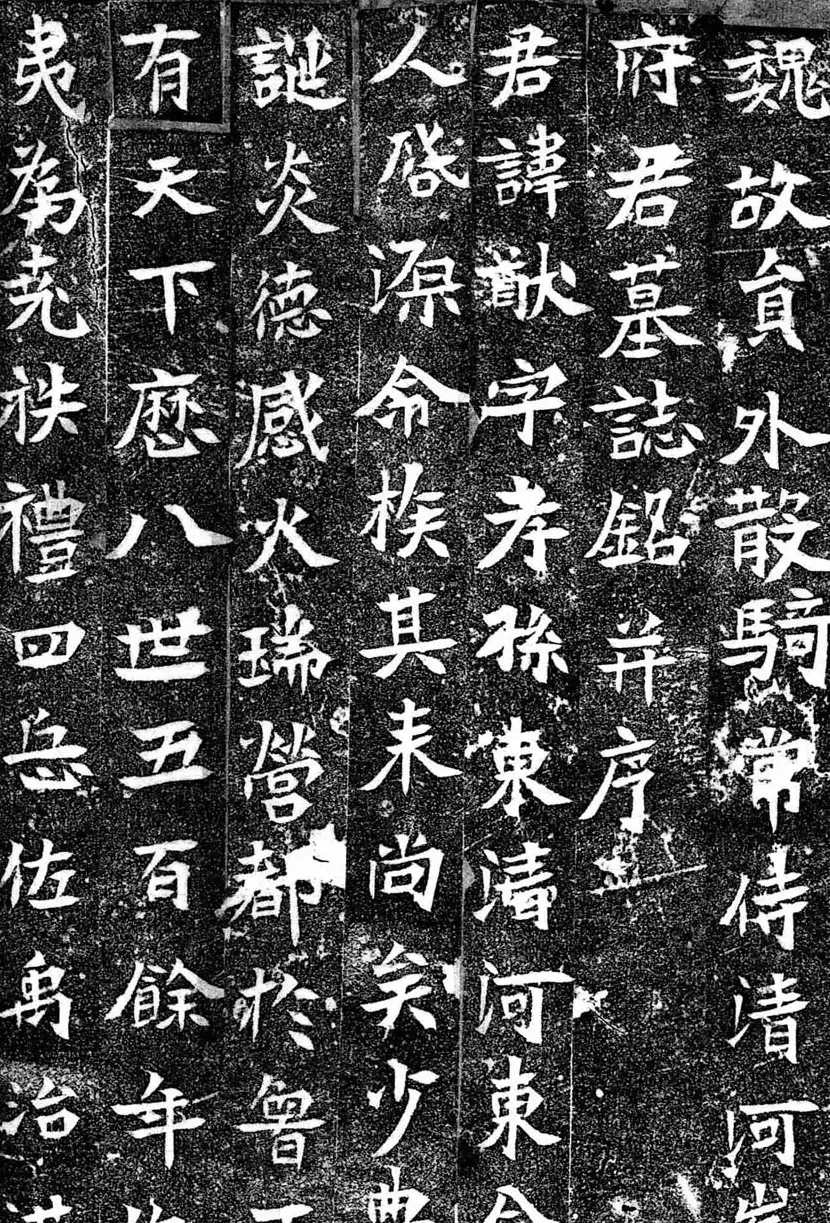 魏故員外散騎常侍清河崔
府君墓誌銘并序
君諱猷字孝孫東清河東
人啓源命族其来尚矣少典
誕炎德感火瑞營都於魯
有天下歷八世五百餘年
夷為堯秩禮四岳佐禹治